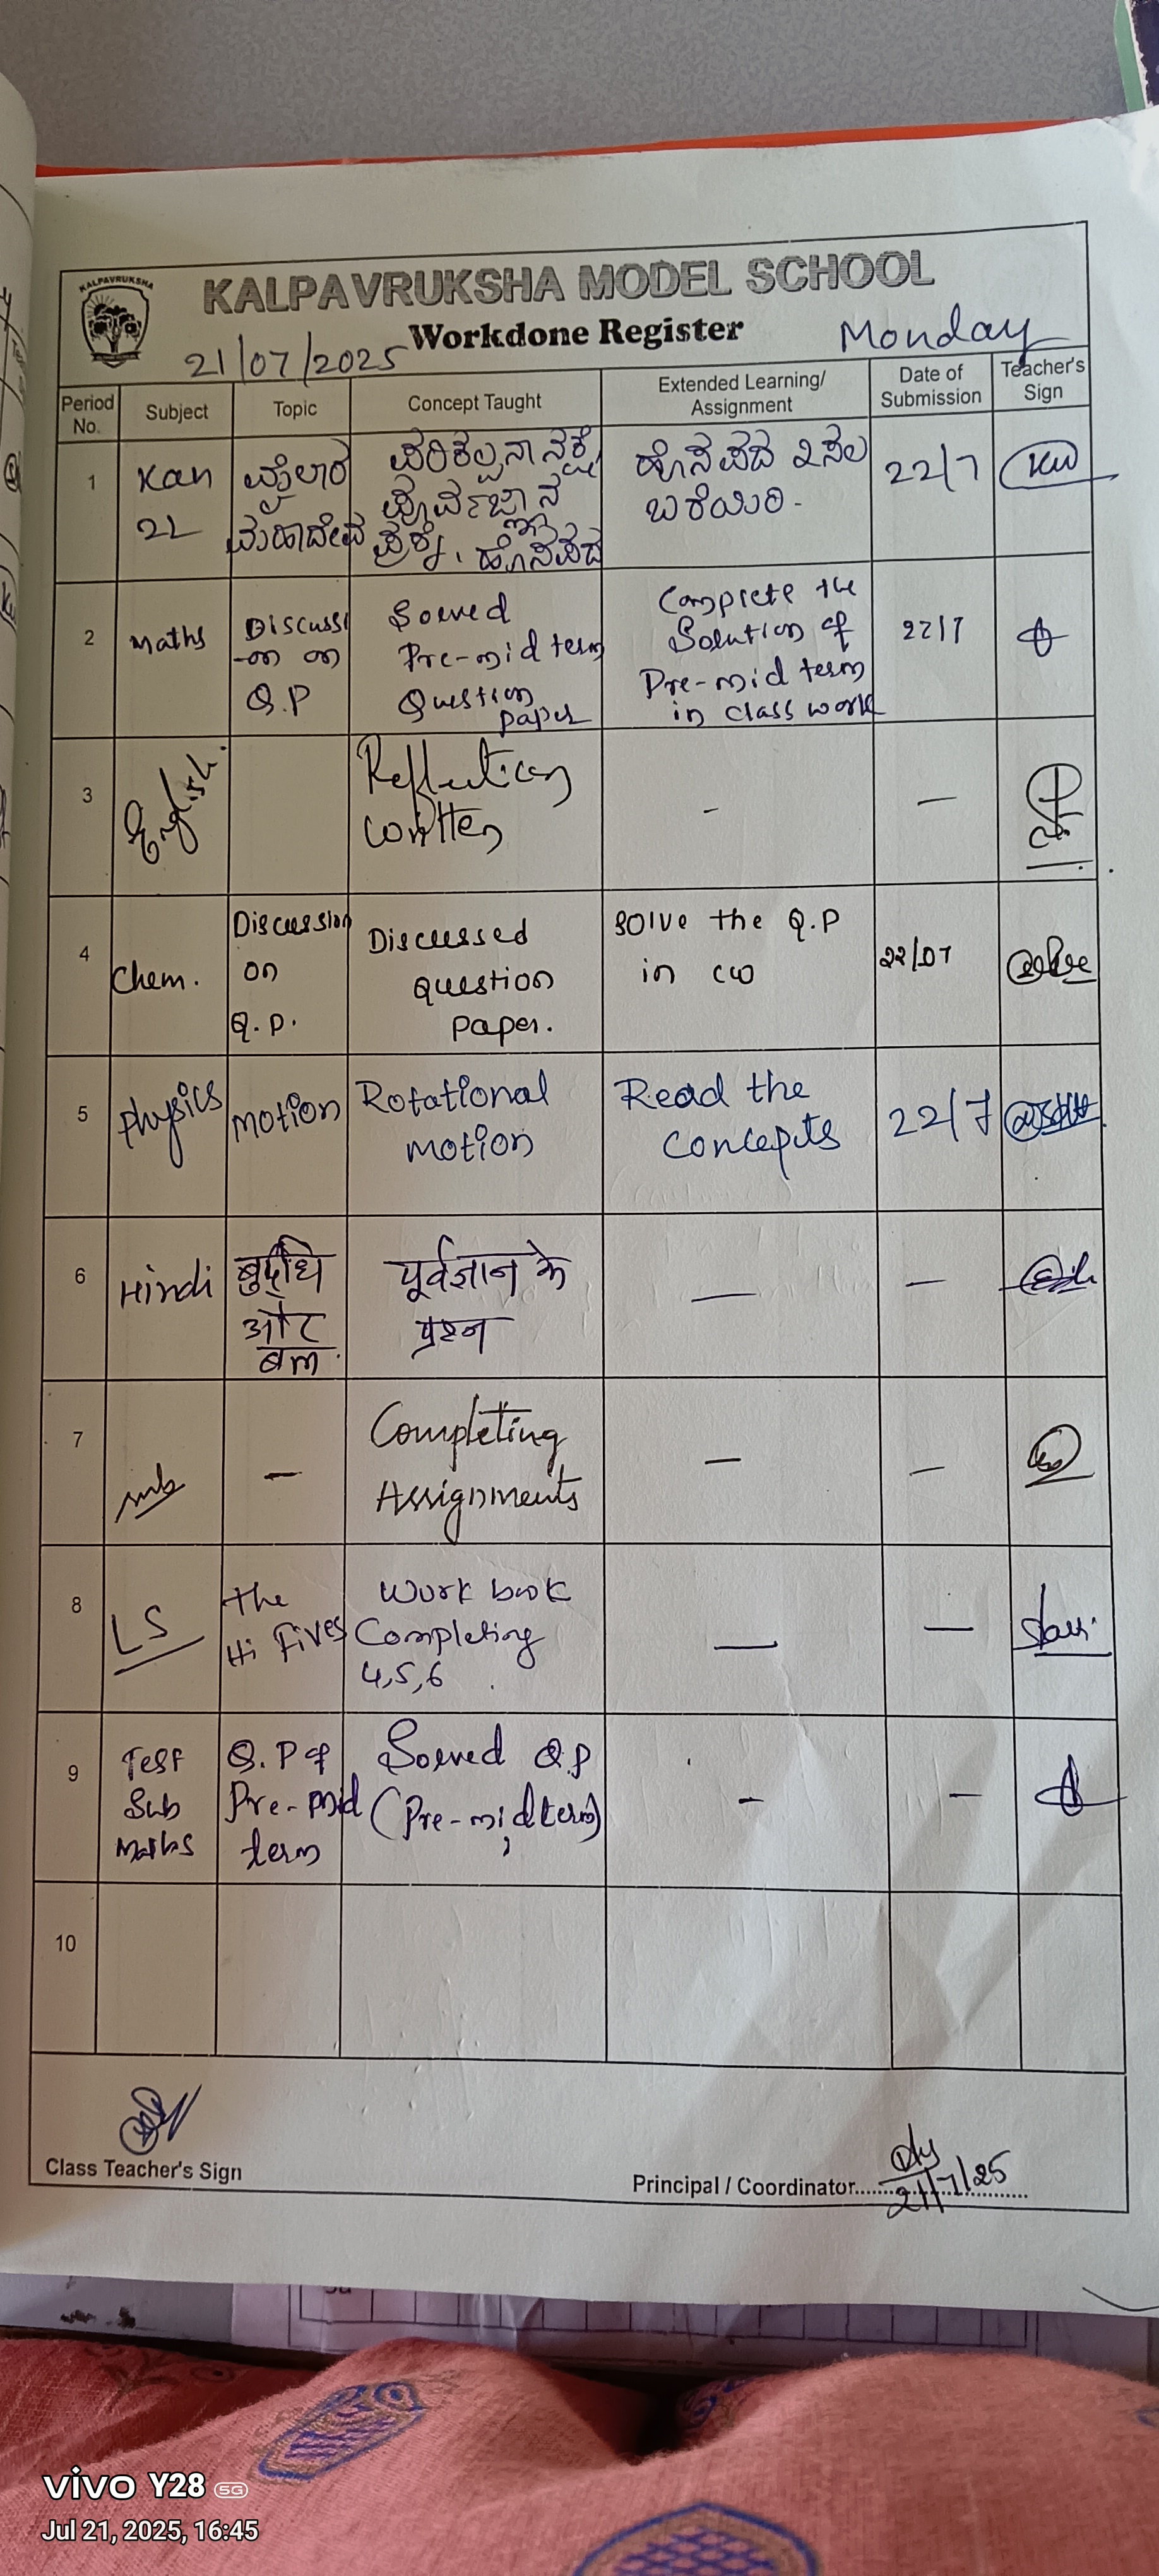 KALPAVRUKSHA
KALPAVRUKSHA MODEL SCHOOL
Workdone Register
21/07/2025
Monday
Period No.
Subject
Topic
Concept Taught
Extended Learning/
Assignment
Date of
Submission
Teacher's
Sign
1
Kan
2L
ಮೈಲಾರ
ಮಹಾದೇವ
ಪರಿಕಲ್ಪನಾ ನಕ್ಷೆ
ಪೂರ್ವಜ್ಞಾನ
ಪ್ರಶ್ನೆ, ಹೊಸಪದ
ಹೊಸಪದ 2ಸಲ
ಬರೆಯಿರಿ.
22/7
2
Maths
Discussi
-on on
Q.P
Solved
Pre-mid term
Question
paper
Complete the
Solution of
Pre-mid term
in class work
22/7
3
English.
Reflection
written
-
—
4
Chem.
Discussion
on
Q.P.
Discussed
question
paper.
solve the Q.P
in cw
22/07
5
Physics
Motion
Rotational
motion
Read the
concepts
22/7
6
Hindi
बुद्धि
और
बल.
पूर्वज्ञान के
प्रश्न
—
—
7
—
Completing
Assignments
—
—
8
LS
the
Hi Fives
Work book
Completing
4,5,6
—
—
9
Test
Sub
Maths
Q.P of
Pre-mid
term
Solved Q.P
(Pre-midterm)
-
-
10
Class Teacher's Sign
Principal / Coordinator
21/7/25
vivo Y28 5G
Jul 21, 2025, 16:45